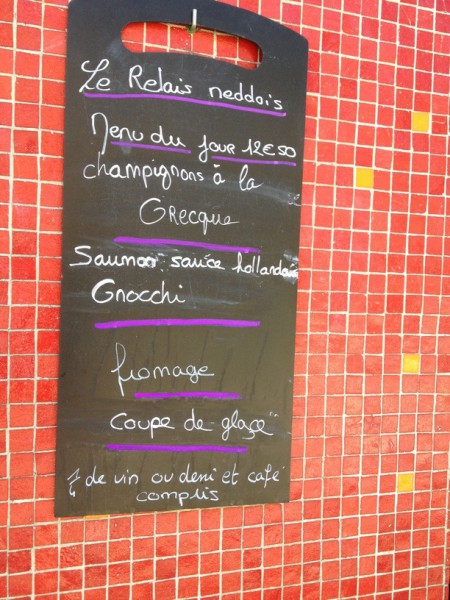 Le Relais neddois
Menu du jour 12€50
champignons à la
Grecque
Saumon sauce hollandaise
Gnocchi
fromage
coupe de glace
1/4 de vin ou demi et café
compris